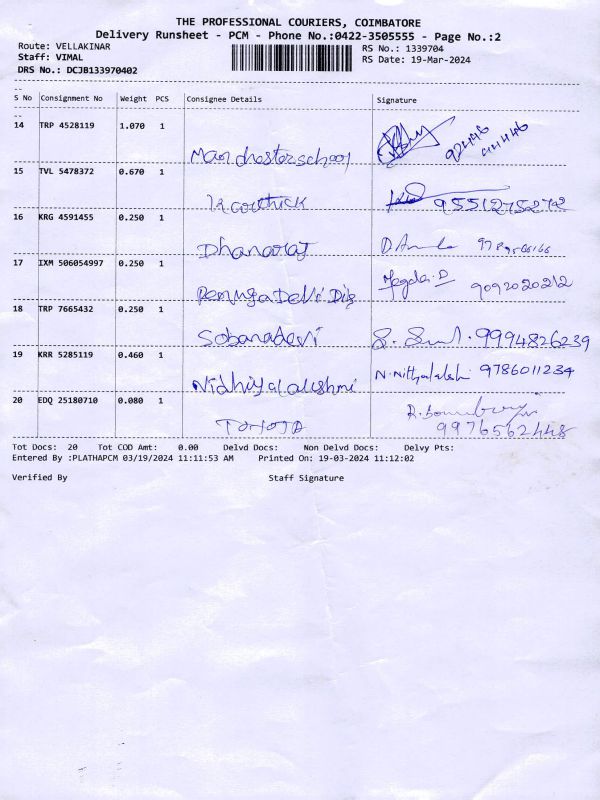 THE PROFESSIONAL COURIERS, COIMBATORE
Delivery Runsheet - PCM - Phone No.:0422-3505555 - Page No.:2
Route: VELLAKINAR
RS No.: 1339704
Staff: VIMAL
RS Date: 19-Mar-2024
DRS No.: DCJB133970402
S No Consignment No Weight PCS Consignee Details Signature
14 TRP 4528119 1.070 1
Manchester school
15 TVL 5478372 0.670 1
K carthick 9551275272
16 KRG 4591455 0.250 1
Dhanaraj
17 IXM 506054997 0.250 1
9092020212
18 TRP 7665432 0.250 1
Sobanadevi 9994826239
19 KRR 5285119 0.460 1
Nidhiyalakshmi 9786011234
20 EDQ 25180710 0.080 1
TOYOTA 9976562448
Tot Docs: 20 Tot COD Amt: 0.00 Delvd Docs: Non Delvd Docs: Delvy Pts:
Entered By :PLATHAPCM 03/19/2024 11:11:53 AM Printed On: 19-03-2024 11:12:02
Verified By Staff Signature